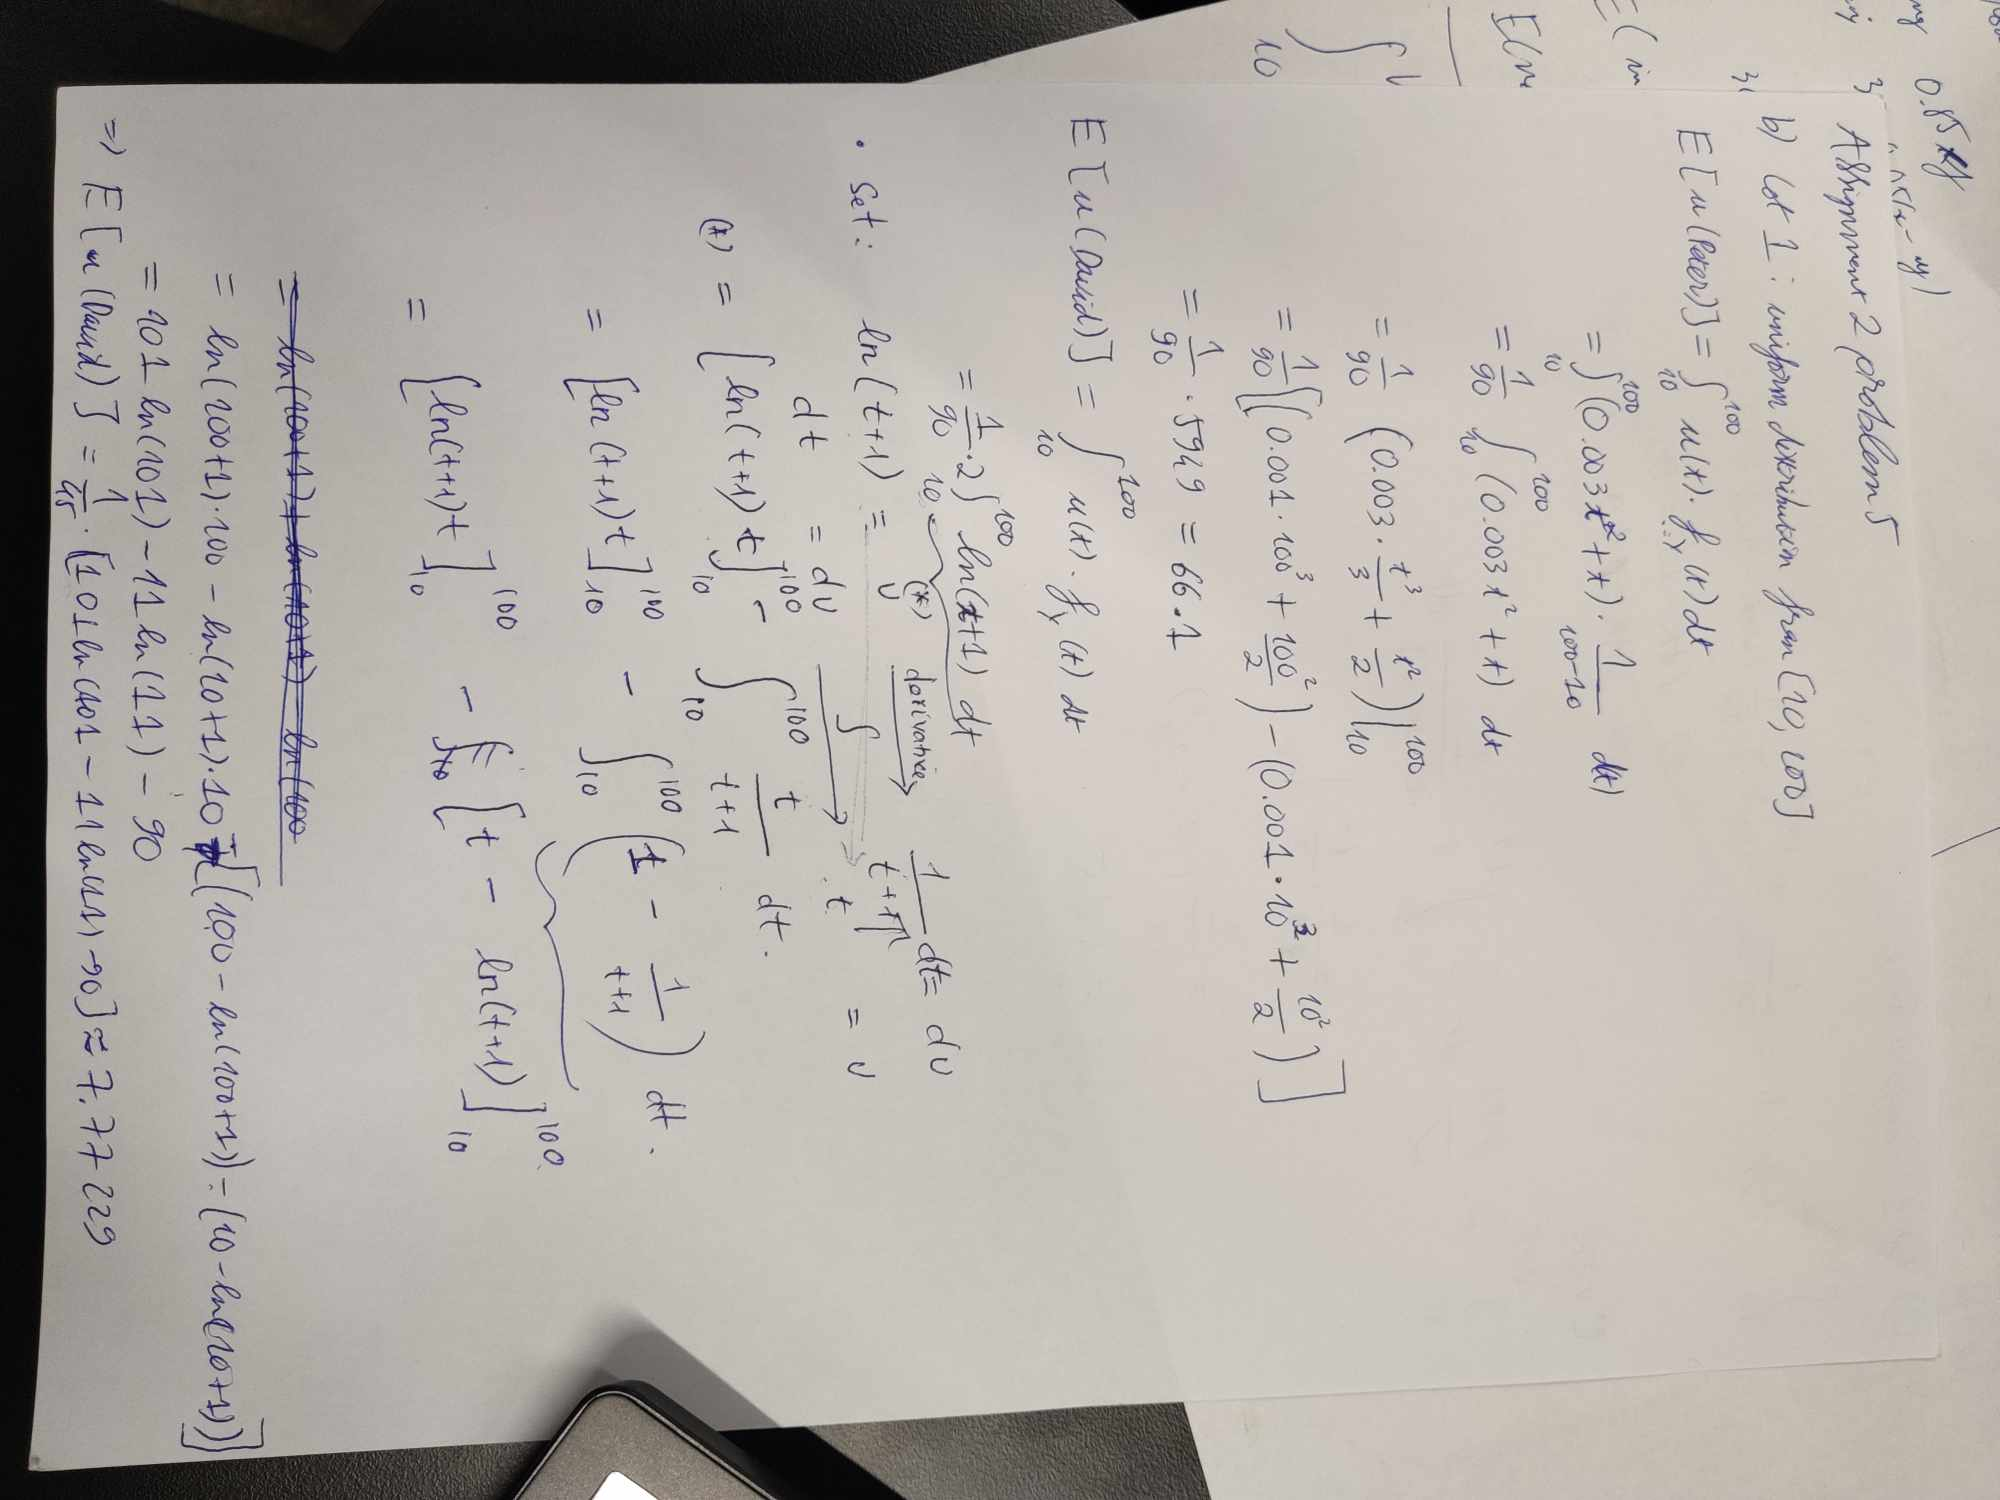 0.85
Assignment 2 problem 5
b) Lot 1 : uniform distribution from [10, 100]
E[u(Peter)] = ∫₁₀¹⁰⁰ u(x) · fₓ(x) dx
= ∫₁₀¹⁰⁰ (0.003x² + x) · 1/(100-10) dx
= 1/90 ∫₁₀¹⁰⁰ (0.003x² + x) dx
= 1/90 (0.003 · x³/3 + x²/2) |₁₀¹⁰⁰
= 1/90 [(0.001 · 100³ + 100²/2) - (0.001 · 10³ + 10²/2)]
= 1/90 · 5949 = 66.1
E[u(David)] = ∫₁₀¹⁰⁰ u(x) · fₓ(x) dx
= 1/90 · 2 ∫₁₀¹⁰⁰ ln(x+1) dx
(*)
• Set: ln(t+1) = u derivative → 1/(t+1) dt = du
dt = dv ∫ → t = v
(*) = [ln(t+1) t]₁₀¹⁰⁰ - ∫₁₀¹⁰⁰ t/(t+1) dt.
= [ln(t+1)t]₁₀¹⁰⁰ - ∫₁₀¹⁰⁰ (1 - 1/(t+1)) dt.
= [ln(t+1)t]₁₀¹⁰⁰ - [t - ln(t+1)]₁₀¹⁰⁰
= ln(100+1) + ln(10+1) - ln(100
= ln(100+1)·100 - ln(10+1)·10 - [(100 - ln(100+1)) - (10 - ln(10+1))]
= 101 ln(101) - 11 ln(11) - 90
=> E[u(David)] = 1/45 · [101 ln(101 - 11 ln(11) - 90] ≈ 7.77229